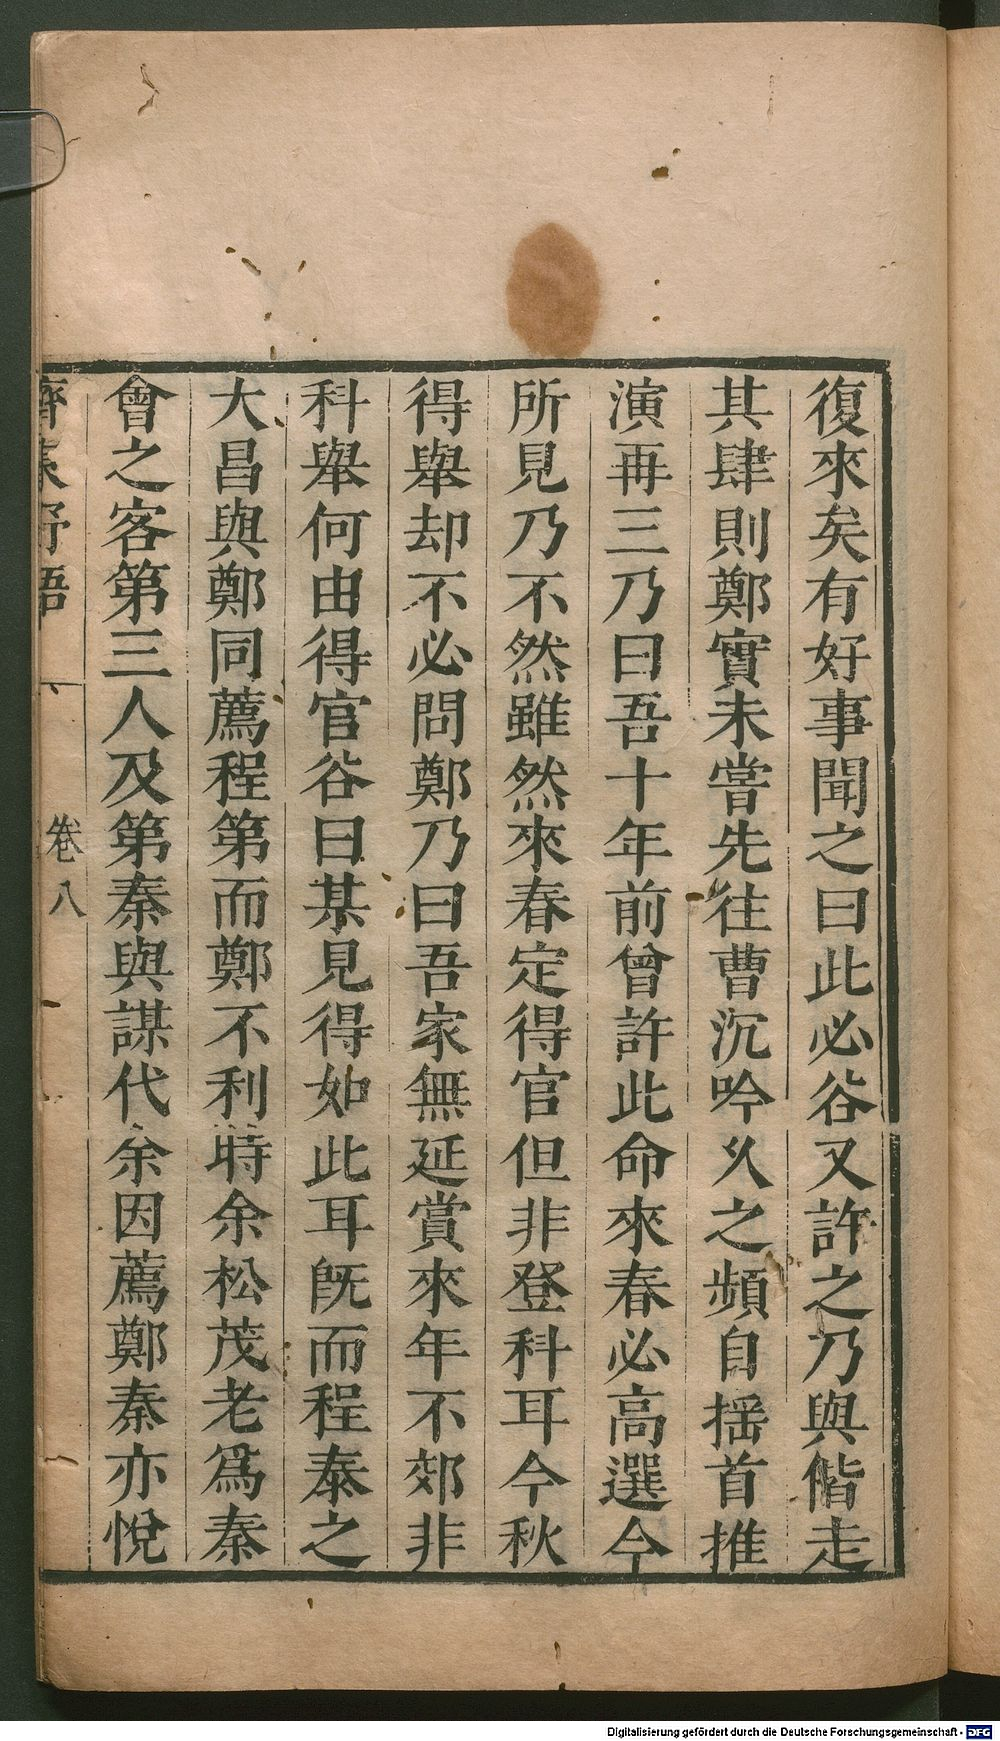 復來矣有好事聞之曰此必谷又許之乃與偕走
其肆則鄭實未嘗先往曹沉吟久之頻自揺首推
演再三乃曰吾十年前曾許此命來春必高選今
所見乃不然雖然來春定得官但非登科耳今秋
得舉却不必問鄭乃曰吾家無延賞來年不郊非
科舉何由得官谷曰某見得如此耳旣而程泰之
大昌與鄭同薦程第而鄭不利時余松茂老爲秦
會之客第三人及第秦與謀代余因薦鄭秦亦悅
齊東野語
卷八
Digitalisierung gefördert durch die Deutsche Forschungsgemeinschaft - DFG